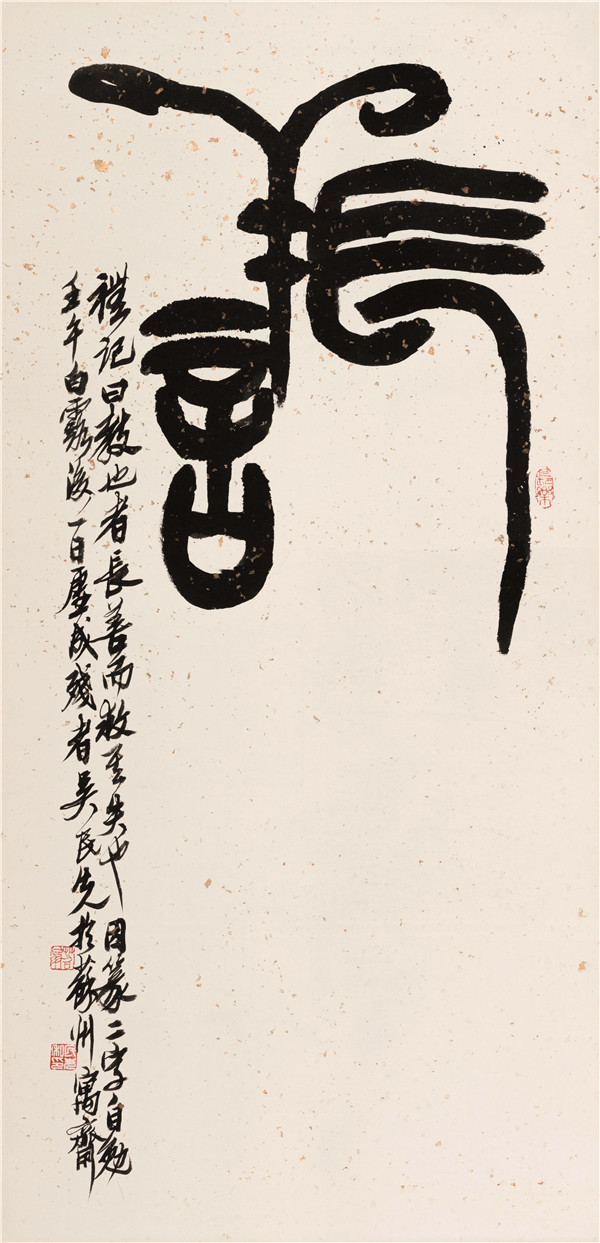 長善
禮記曰教也者長善而救其失也因篆二字自勉
壬午白露後一日成殘者吳民先於蘇州寓齋